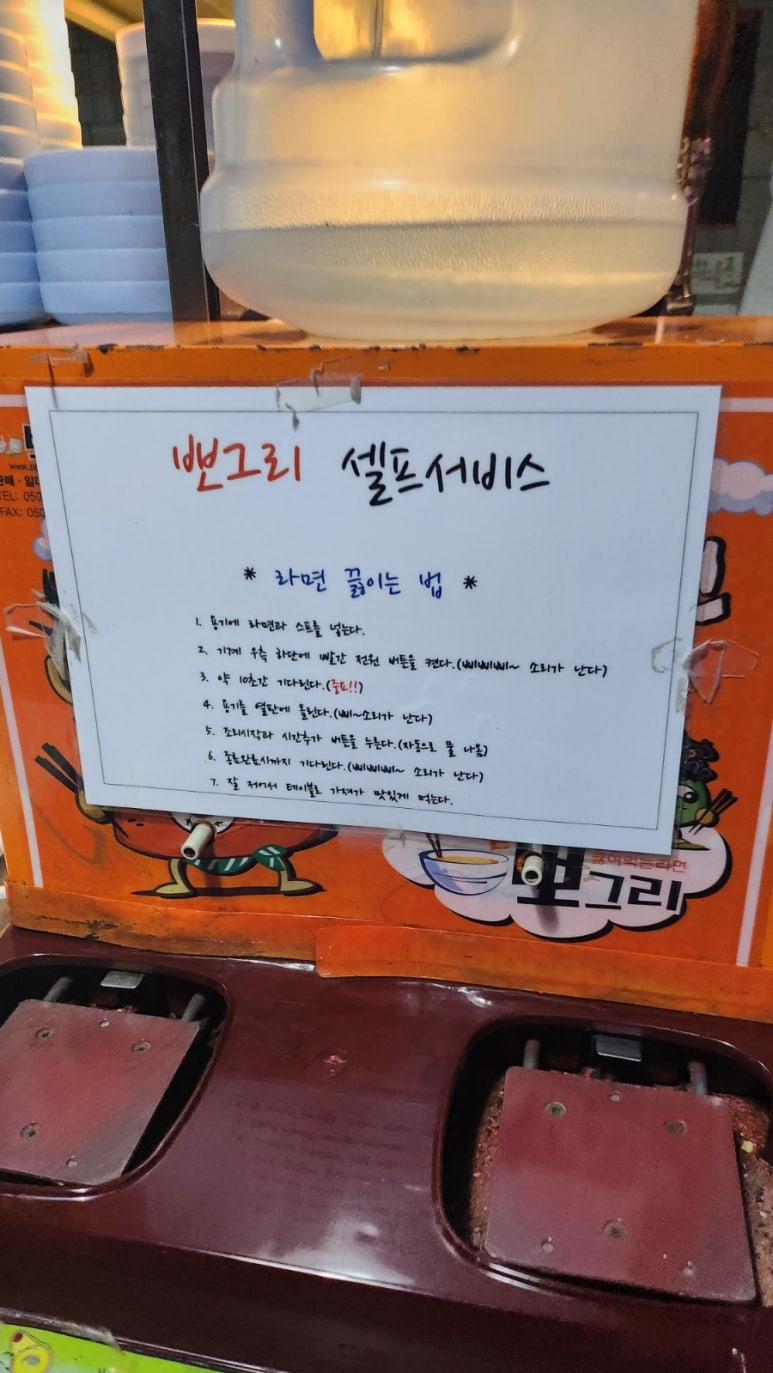 뽀그리 셀프서비스
* 라면 끓이는 법 *
1. 용기에 라면과 스프를 넣는다.
2. 기계 우측 하단에 빨간 전원 버튼을 켠다.(삐삐삐~ 소리가 난다)
3. 약 10초간 기다린다.(중요!!)
4. 용기를 열판에 올린다.(삐~소리가 난다)
5. 조리시작과 시간추가 버튼을 누른다.(자동으로 물 나옴)
6. 종료완료시까지 기다린다.(삐삐삐~ 소리가 난다)
7. 잘 저어서 테이블로 가져가 맛있게 먹는다.
TEL: 050
FAX: 050
끓여먹는라면
뽀그리